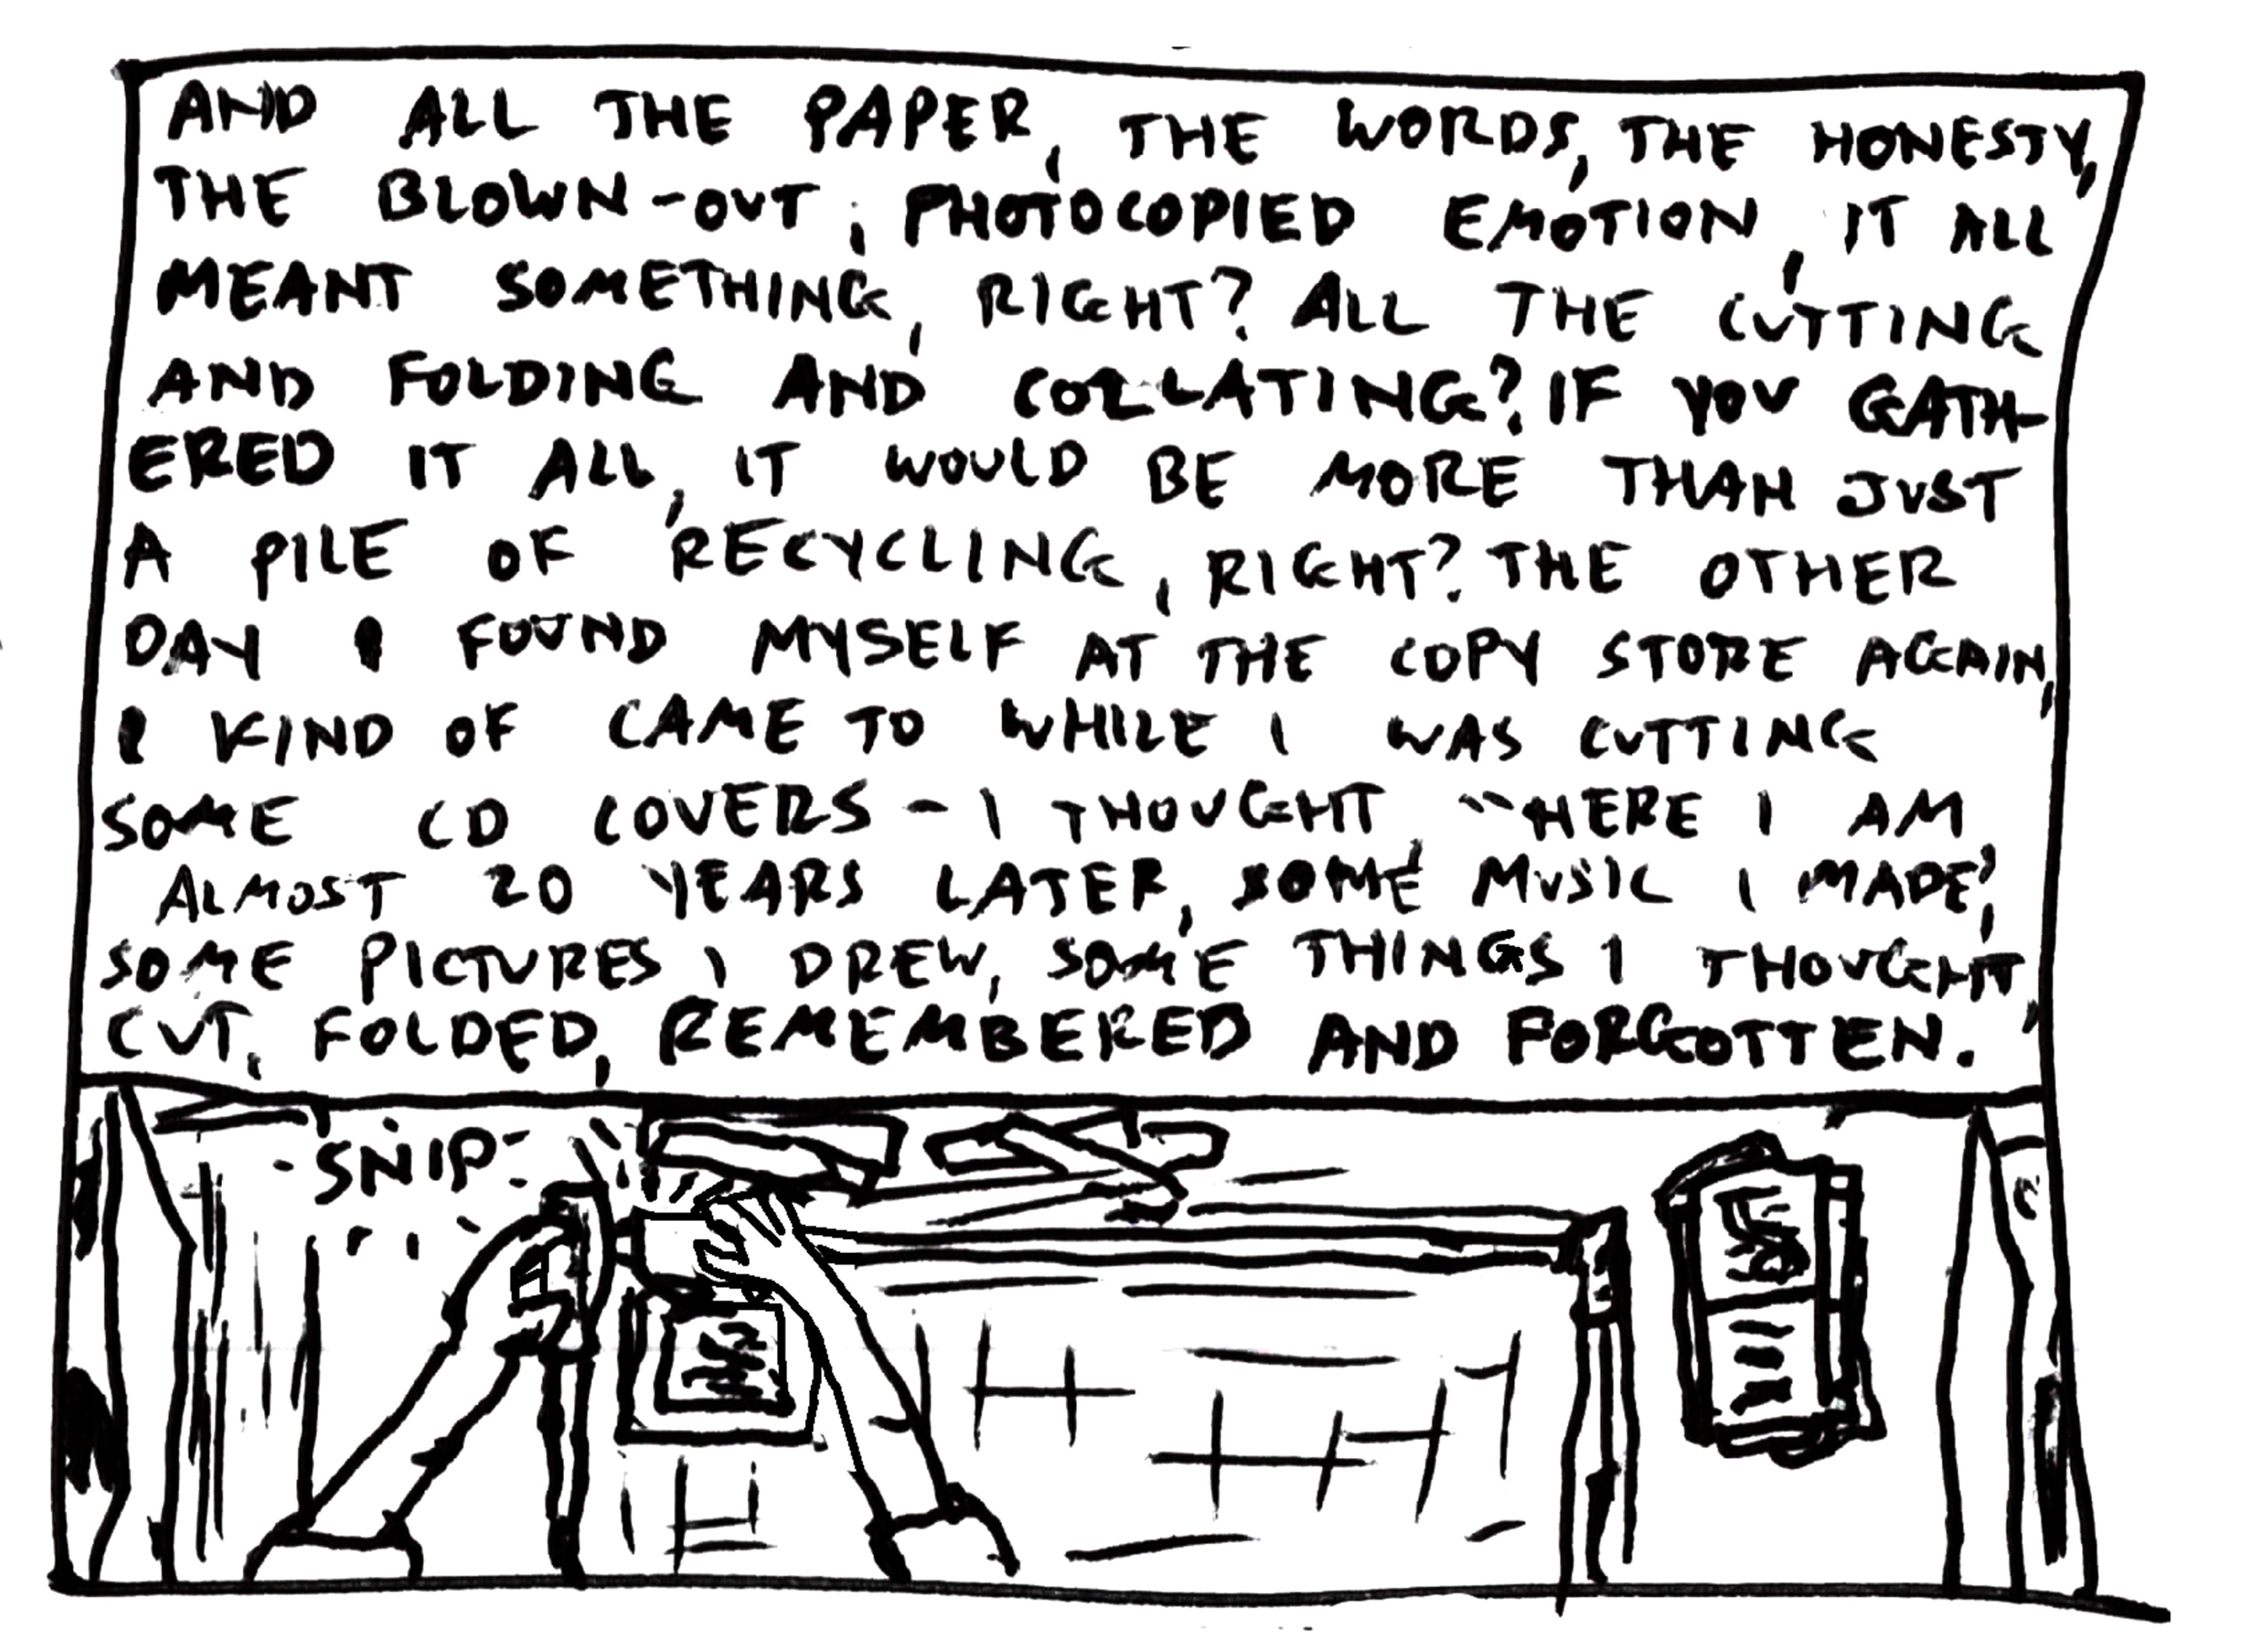 AND ALL THE PAPER, THE WORDS, THE HONESTY,
THE BLOWN-OUT, PHOTOCOPIED EMOTION, IT ALL
MEANT SOMETHING, RIGHT? ALL THE CUTTING
AND FOLDING AND COLLATING? IF YOU GATH-
ERED IT ALL, IT WOULD BE MORE THAN JUST
A PILE OF RECYCLING, RIGHT? THE OTHER
DAY I FOUND MYSELF AT THE COPY STORE AGAIN,
I KIND OF CAME TO WHILE I WAS CUTTING
SOME CD COVERS - I THOUGHT, "HERE I AM,
ALMOST 20 YEARS LATER, SOME MUSIC I MADE,
SOME PICTURES I DREW, SOME THINGS I THOUGHT,
CUT, FOLDED, REMEMBERED AND FORGOTTEN.
SNIP